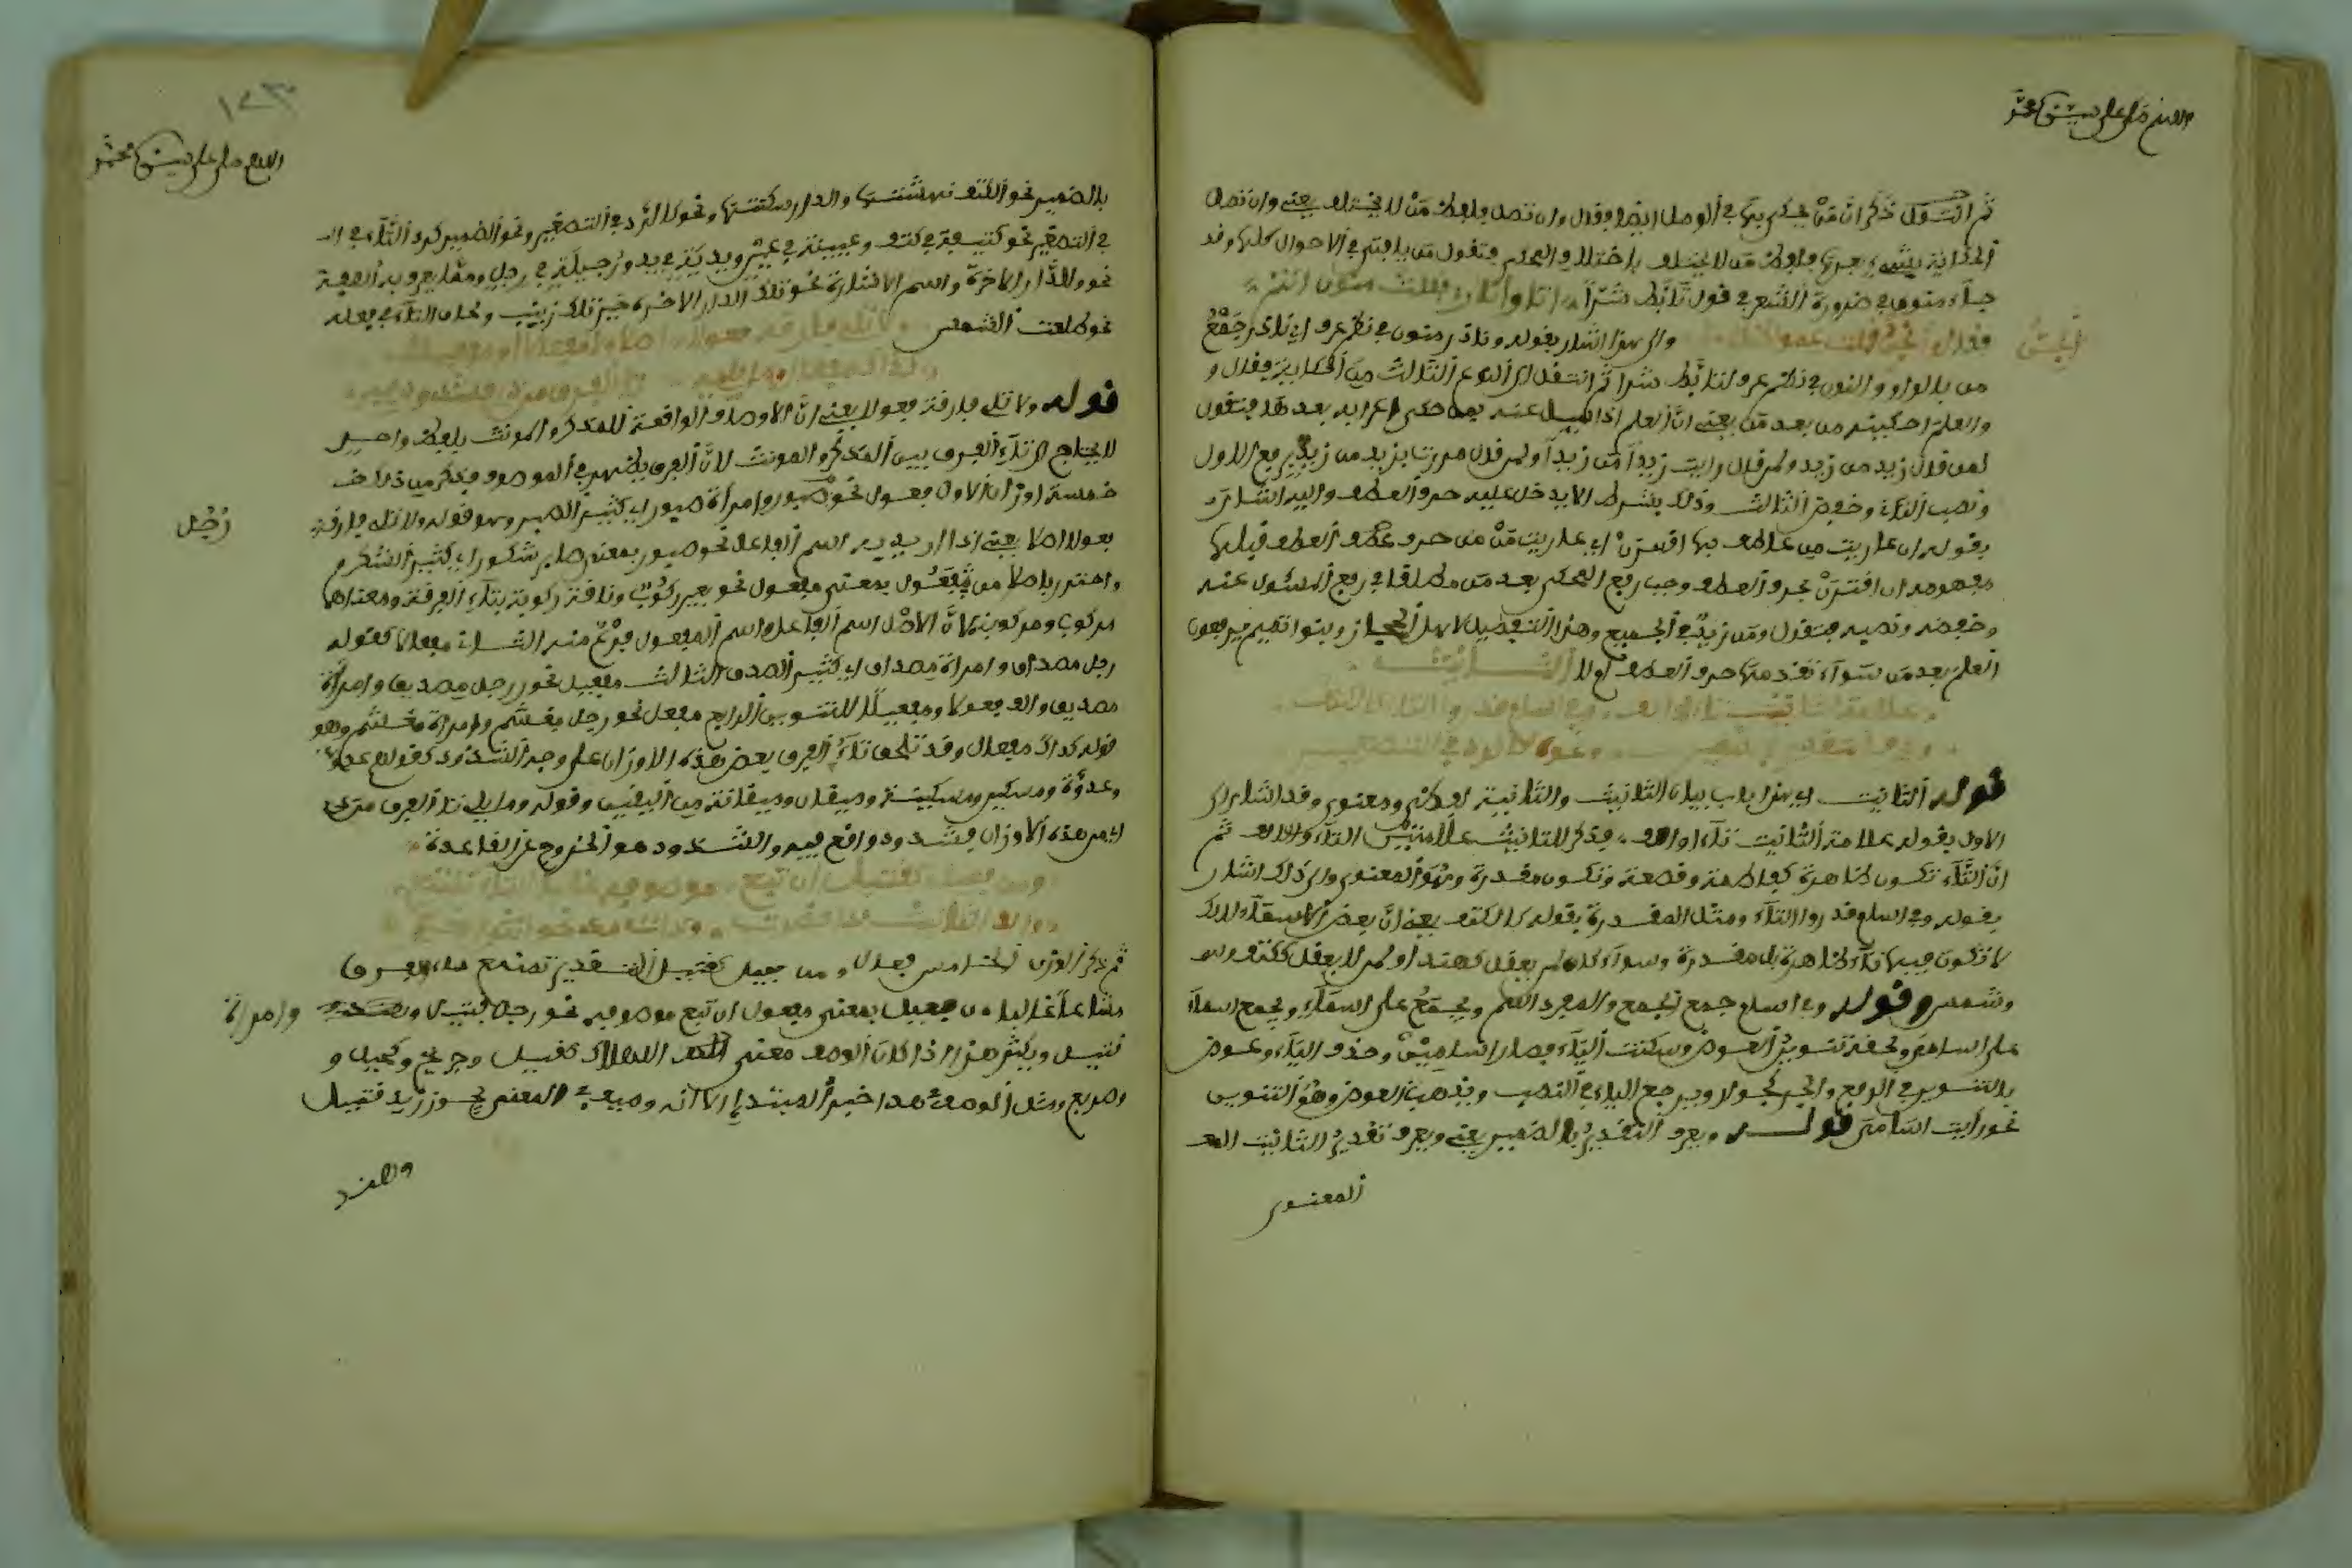 اللهم صل على سيدنا محمد
ثم انتقل ذكر ان من يحكى بها في الوصل ايضا وقال وان تصل فلفظ من لا يختلف يعني وان تصل
الحكاية بشيء بعدها فلفظ من لا يختلف باختلاف المحكي فتقول من يا فتى في الاحوال كلها وقد
جاء منون في ضرورة الشعر في قول تأبط شرا اتوا ناري فقلت منون انتم
فقالوا الجن قلت عموا ظلاما والى هذا اشار بقوله ونادر منون في نظم عرف اي نادر جمع
الجن
من بالواو والنون في نظم عرف لتأبط شرا ثم انتقل الى النوع الثالث من الحكاية فقال و
والعلم احكينه من بعد من يعني ان العلم اذا سيل عنه بمن حكي اعرابه بعدها فتقول
لمن قال زيد من زيد ولمن قال رايت زيدا من زيدا ولمن قال مررت بزيد من زيد برفع الاول
ونصب الثاني وخفض الثالث وذلك بشرط الا يدخل عليه حرف العطف واليه اشار
بقوله ان عريت من عاطف بها اقترن اي عريت من من حرف عطف قبلها
مفهومه ان اقترن بحرف العطف وجب رفع المحكي بعد من مطلقا في رفع المسئول عنه
وخفضه ونصبه فتقول ومن زيد في الجميع وهذا التفصيل لاهل الحجاز وبنوا تميم يرفعون
العلم بعد من سواء تقدمها حرف العطف او لا التانيث
علامة التانيث تاء او الف وفي اسام قدروا التا كالكتف
ويعرف التقدير بالضمير ونحوه كالرد في التصغير
قوله التانيث اي هذا باب بيان التانيث والتانيث لفظي ومعنوي وقد اشار الى
الاول بقوله علامة التانيث تاء او الف فذكر للتانيث علامتين التاء والالف ثم
ان التاء تكون ظاهرة كفاطمة وقصعة وتكون مقدرة وهو المعنوي والى ذلك اشار
بقوله وفي اسام قدروا التاء ومثل المقدرة بقوله كالكتف يعني ان بعض الاسماء
لا تكون فيها تاء ظاهرة بل مقدرة وسواء كان لمن يعقل كهند او لمن لا يعقل ككتف
وشمس وقوله وفي اسام جمع الجمع والمفرد اسم ويجمع على اسماء ويجمع اسماء
على اسامي ولحقه تنوين العوض وسكنت الياء فصار اسامين وحذف الياء وعوض
بالتنوين في الرفع والجر كجوار ويرجع الياء في النصب ويذهب العوض وهو التنوين
نحو رايت اسامي قوله ويعرف التقدير بالضمير يعني ويعرف تقدير التانيث
المعنوي
١٢٣
اللهم صل على سيدنا محمد
بالضمير نحو الكتف نهشتها والدار سكنتها ونحو كالرد في التصغير ونحو الضمير كرد التاء في
في التصغير نحو كتيفة في كتف وعيينة في عين ويدية في يد ورجيلة في رجل
نحو والدار الاخرة واسم الاشارة نحو تلك الدار الاخرة زينب ولحاق التاء في فعله
نحو طلعت الشمس ولا تلي فارقة فعولا اصلا ولا المفعال والمفعيلا
كذاك مفعل وما تليه تا الفرق من ذي فشذوذ فيه
قوله ولا تلي فارقة فعولا يعني ان الاوصاف الواقعة للمذكر والمونث بلفظ واحد
لا يحتاج الى تاء الفرق بين المذكر والمونث لان الفرق يظهر في الموصوف فذكر من ذلك
خمسة اوزان الاول فعول نحو رجل صبور وامراة صبور اي كثير الصبر وهو قوله ولا تلي فارقة
رجل
فعولا اصلا يعني اذا اريد به اسم الفاعل نحو صبور بمعنى صابر شكور اي كثير الشكر
واحترز باصلا من فعول بمعنى مفعول نحو بعير ركوب وناقة ركوبة بتاء الفرقة ومعناها
مركوب ومركوبة لان الاصل اسم الفاعل واسم المفعول فرع منه الثاني مفعال كقوله
رجل مصداق وامراة مصداق اي كثير الصدق الثالث مفعيل نحو رجل مصديق وامراة
مصديق والف فعولا ومفعيلا للتنوين الرابع مفعل نحو رجل مغشم وامراة مغشم وهو
قوله كذاك مفعل وقد تلحق تاء الفرق بعض هذه الاوزان على وجه الشذوذ كقولهم عدو
وعدوة ومسكين ومسكينة وميقان وميقانة من اليقين وقوله وما يلي تا الفرق من ذي
اي من هذه الاوزان فشذوذ واقع فيه والشذوذ هو الخروج عن القاعدة
ومن فعيل كقتيل ان تبع موصوفه غالبا التا تمتنع
والف التانيث ذات قصر وذات مد نحو انثى الغر
ثم ذكر الوزن الخامس فقال ومن فعيل كقتيل التقدير تمتنع تاء الفرق
غالبا من فعيل بمعنى مفعول ان تبع موصوفه نحو رجل قتيل
وامراة
قتيل ويكثر هذا اذا كان الوصف معنى الهلاك كقتيل وجريح وكحيل و
وصريع ومثل الوصف هذا خبر المبتدا الا انه وصيف في المعنى نحو زيد قتيل
وهند